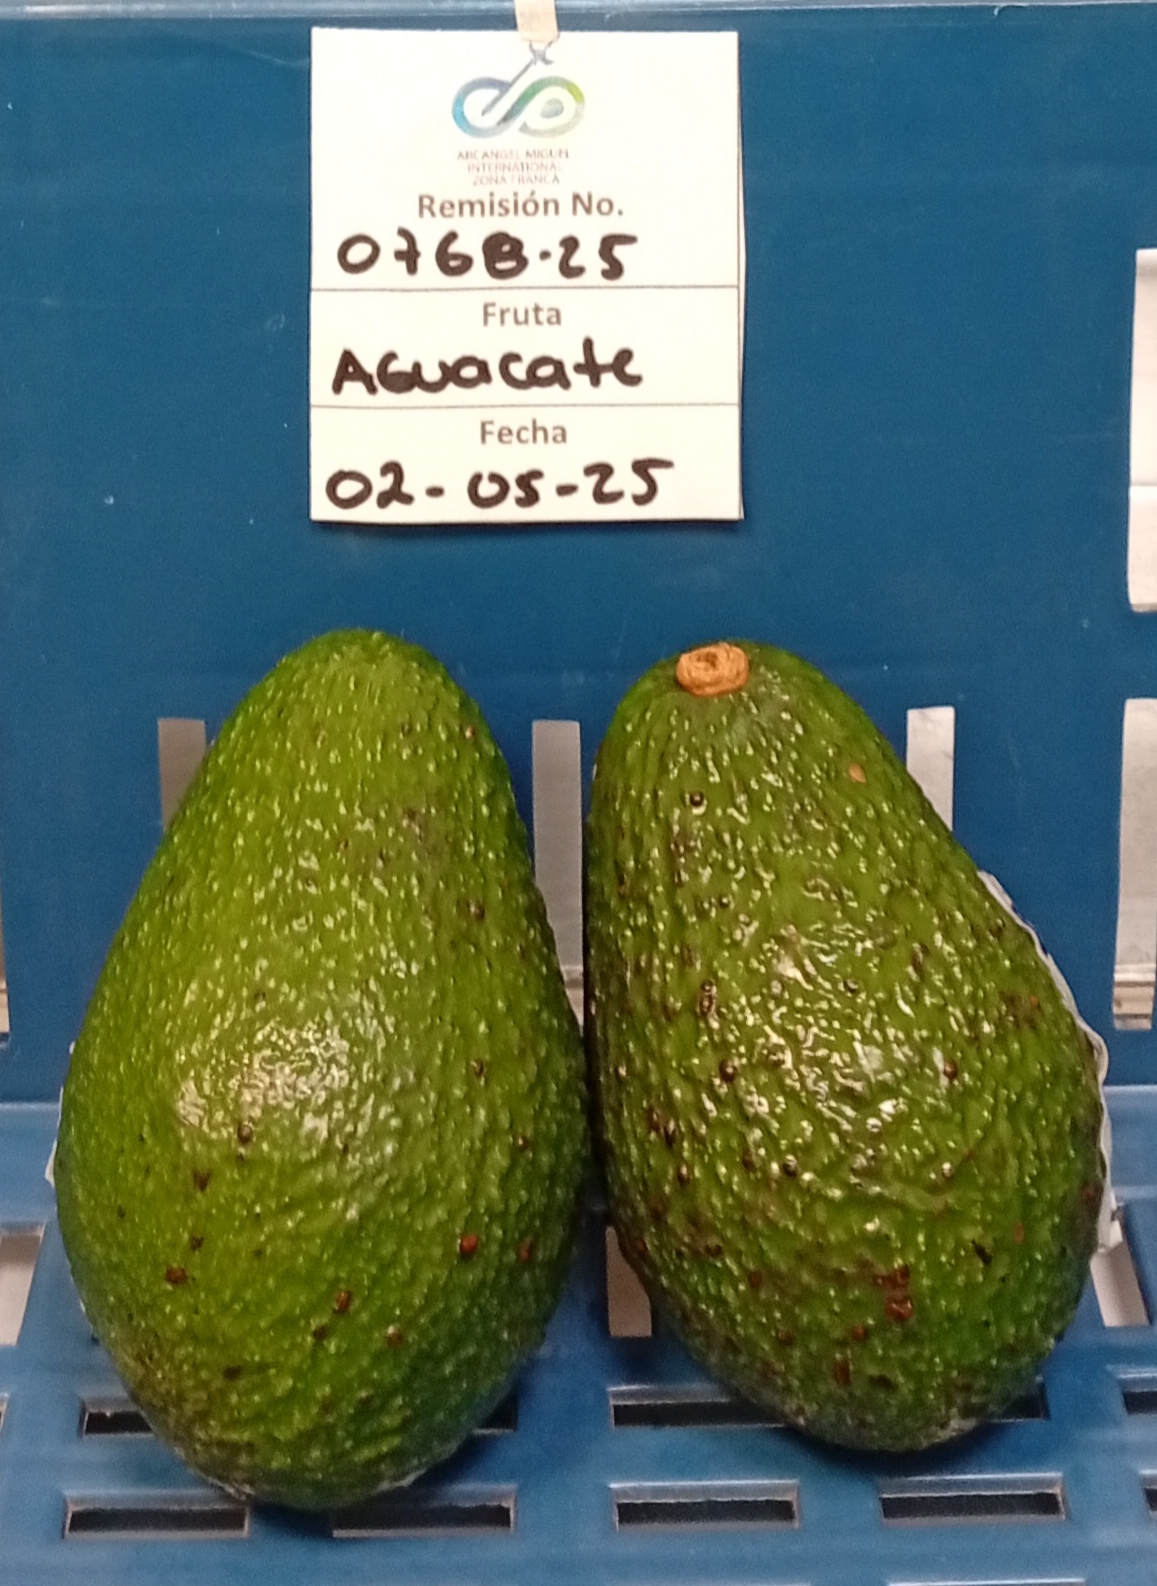 ARCANGEL MIGUEL
INTERNATIONAL
ZONA FRANCA
Remisión No.
0768-25
Fruta
AGuacate
Fecha
02-05-25